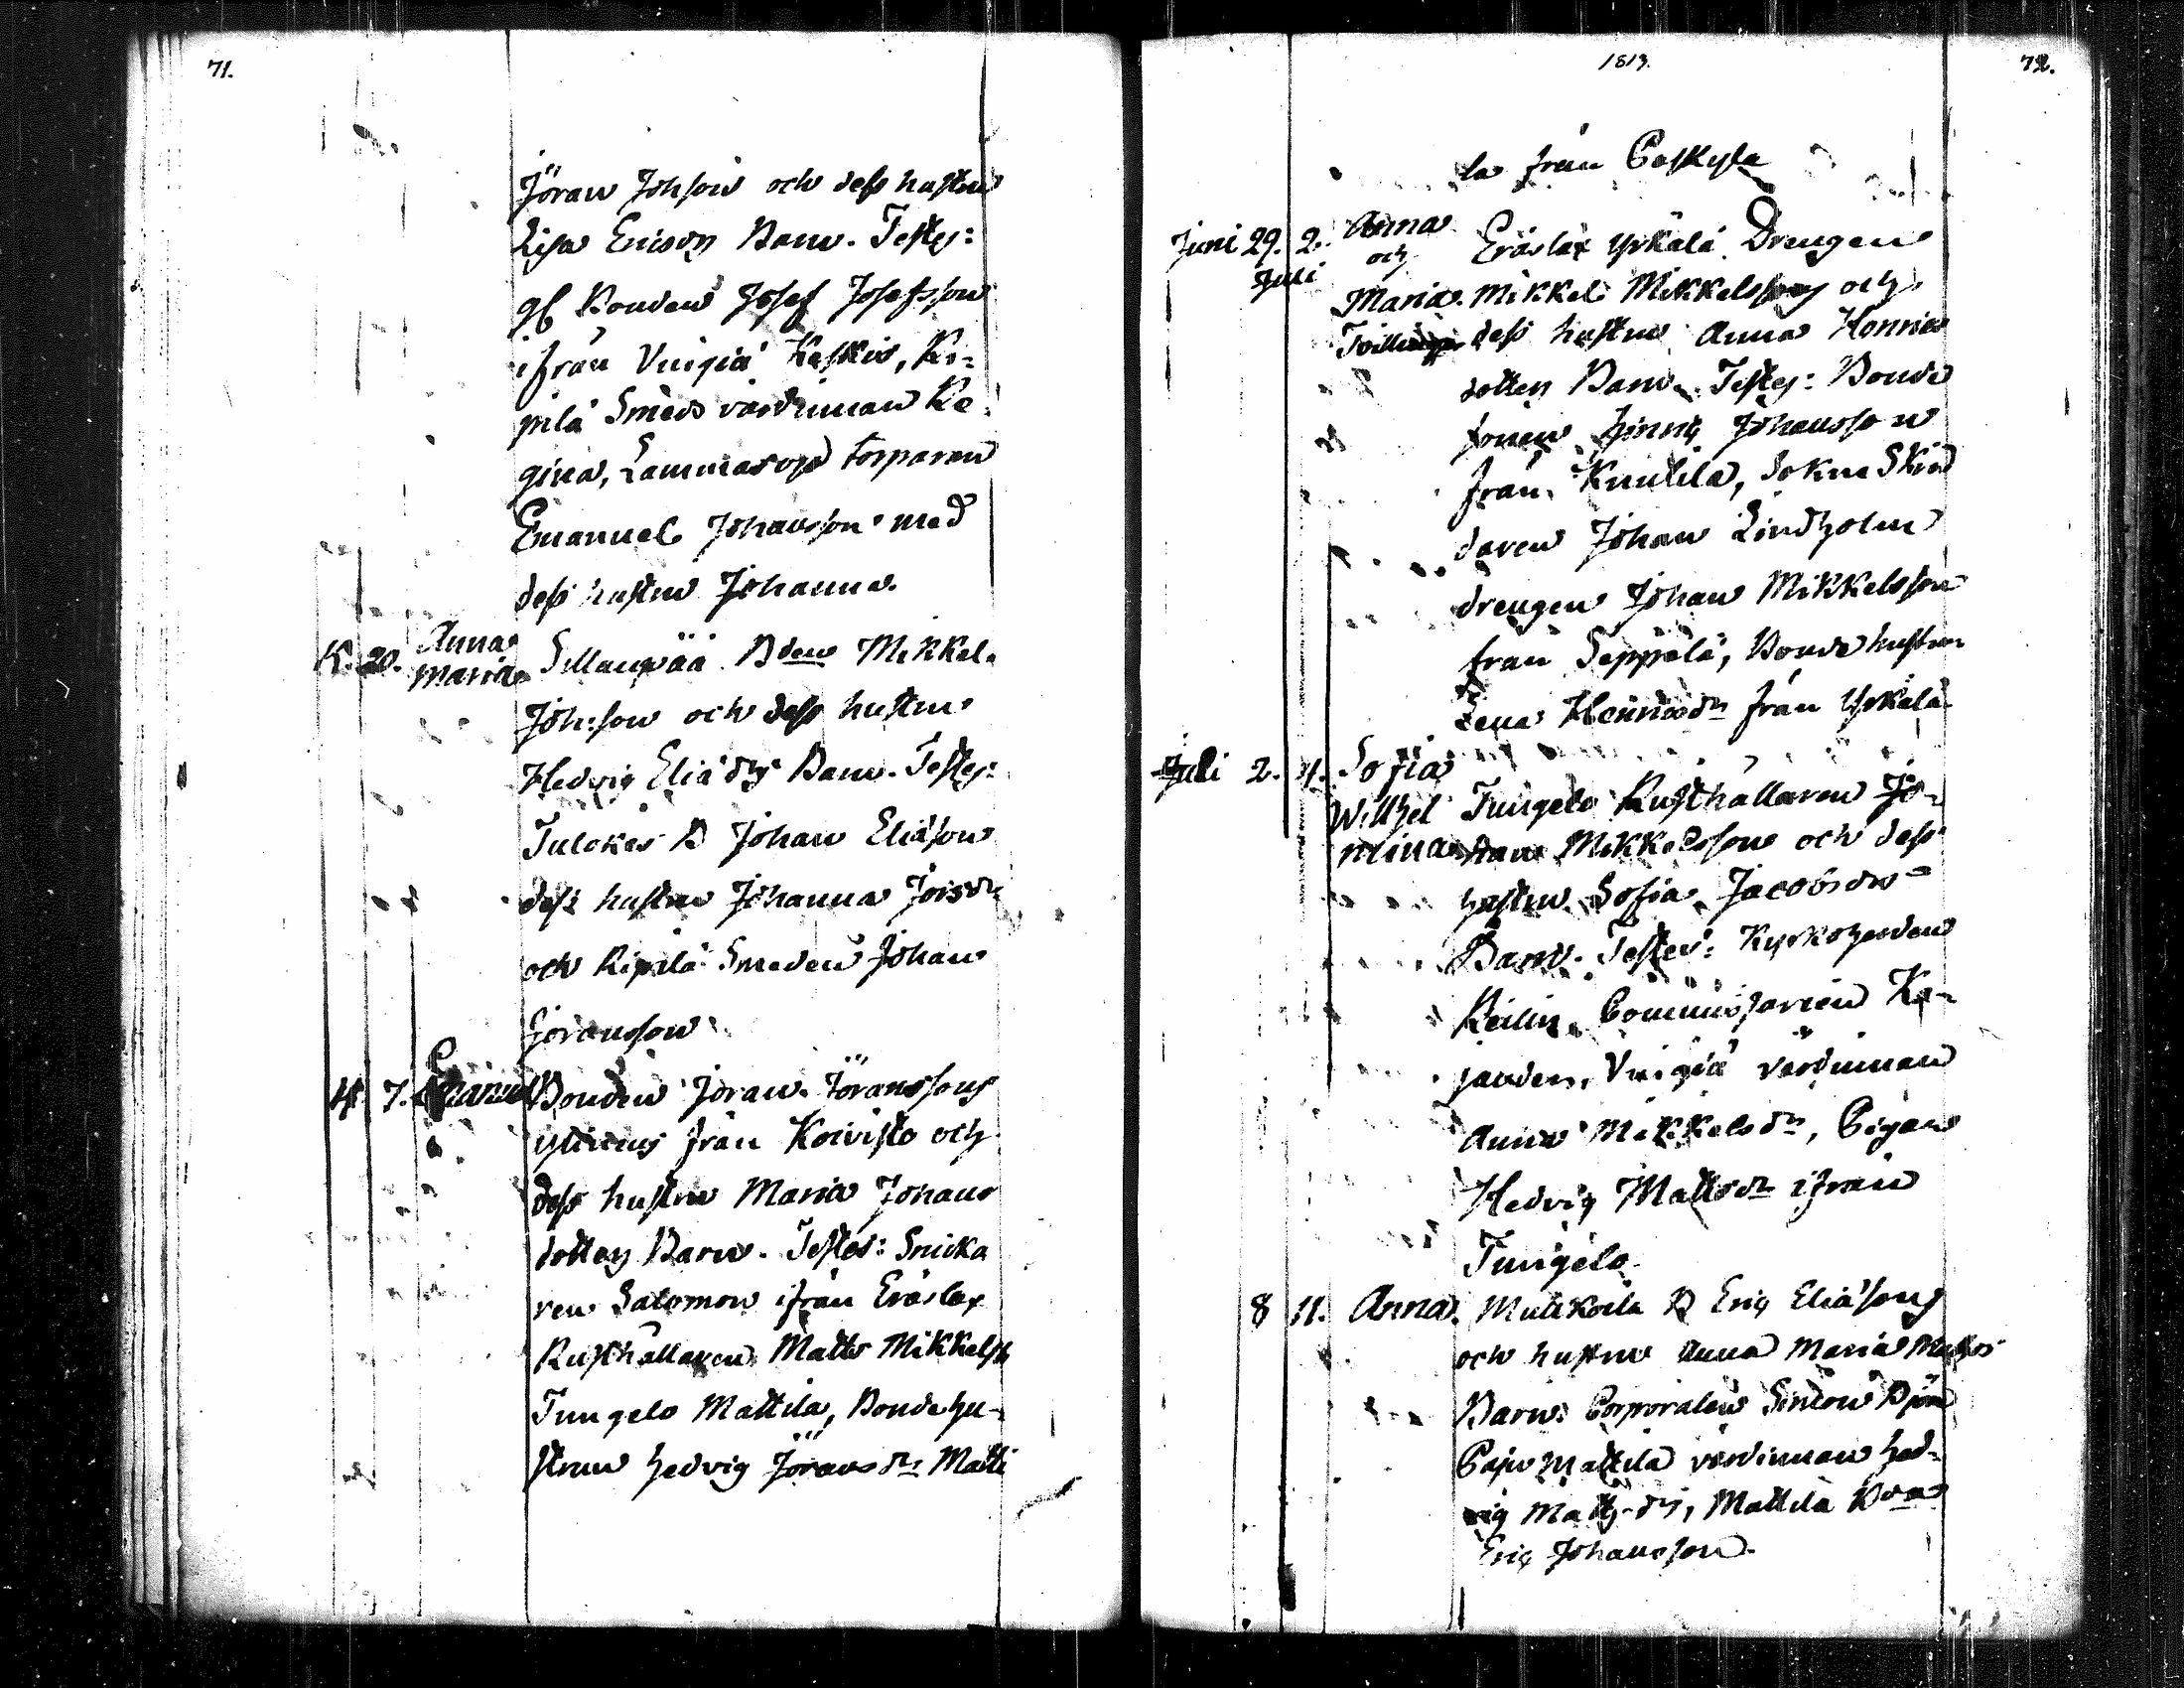 71.
Jöran Johson och dess hustru
Lisa Ericsdr Barn. Testes:
gl Bonden Josef Josefsson
ifrån Vuigiä Keskis, Ki-
pilä Smeds värdinnan Re-
gina, Lammasoja torparen
Emanuel Johansson med
dess hustru Johanna.
K. 20. Anna Maria Sillanpää Bden Mikkel
Johsson och dess hustru
Hedvig Eliädr Barn. Testes:
B Johan Eliäson
dess hustru Johanna Jörsdr
och Kipilä Smeden Johan
Göransson
4 7. Emanuel Bonden Jöran Göranssons
från Koivisto och
dess hustru Maria Johans
dotters Barn. Testes: Snicka
ren Salomon ifrån Eräslax
Rusthållaren Matts Mikkelss
Tungelo Mattila, Bondehu-
strun Hedvig Jöransdr Matti
1813. 72.
la från Paskyla
Juni 29. 2. Juli Anna och Maria Tvillingar Eräslax Yrkälä Drengen
Mikkel Mikkelssons och
dess hustru Anna Henrics
dotters Barn. Testes: Bonde
sonen Johansson
från Knutila, Sokne Skräd
daren Johan Lindholm
drengen Johan Mikkelsson
från Seppälä, Bondehustrun
Lena Henricsdr från Yrkälä
Juli 2. 4. Sofia Wilhelmina Tungelo Rusthållaren Jo-
han Mikkelssons och dess
hustru Sofia Jacobsdrs
Barn. Testes: Kyrkoherden
Commissarien Ka-
janden, Vuigiä värdinnan
Anna Mikkelsdr, Pigan
Hedvig Mattsdr ifrån
Tungelo
8 11. Anna. Mullikoila B Eric Eliäsons
och hustru Anna Maria
Barn. Corporalen Simon Björn
Paju Mattila värdinnan Hed-
vig Mattsdr, Mattila
Eric Johansson.